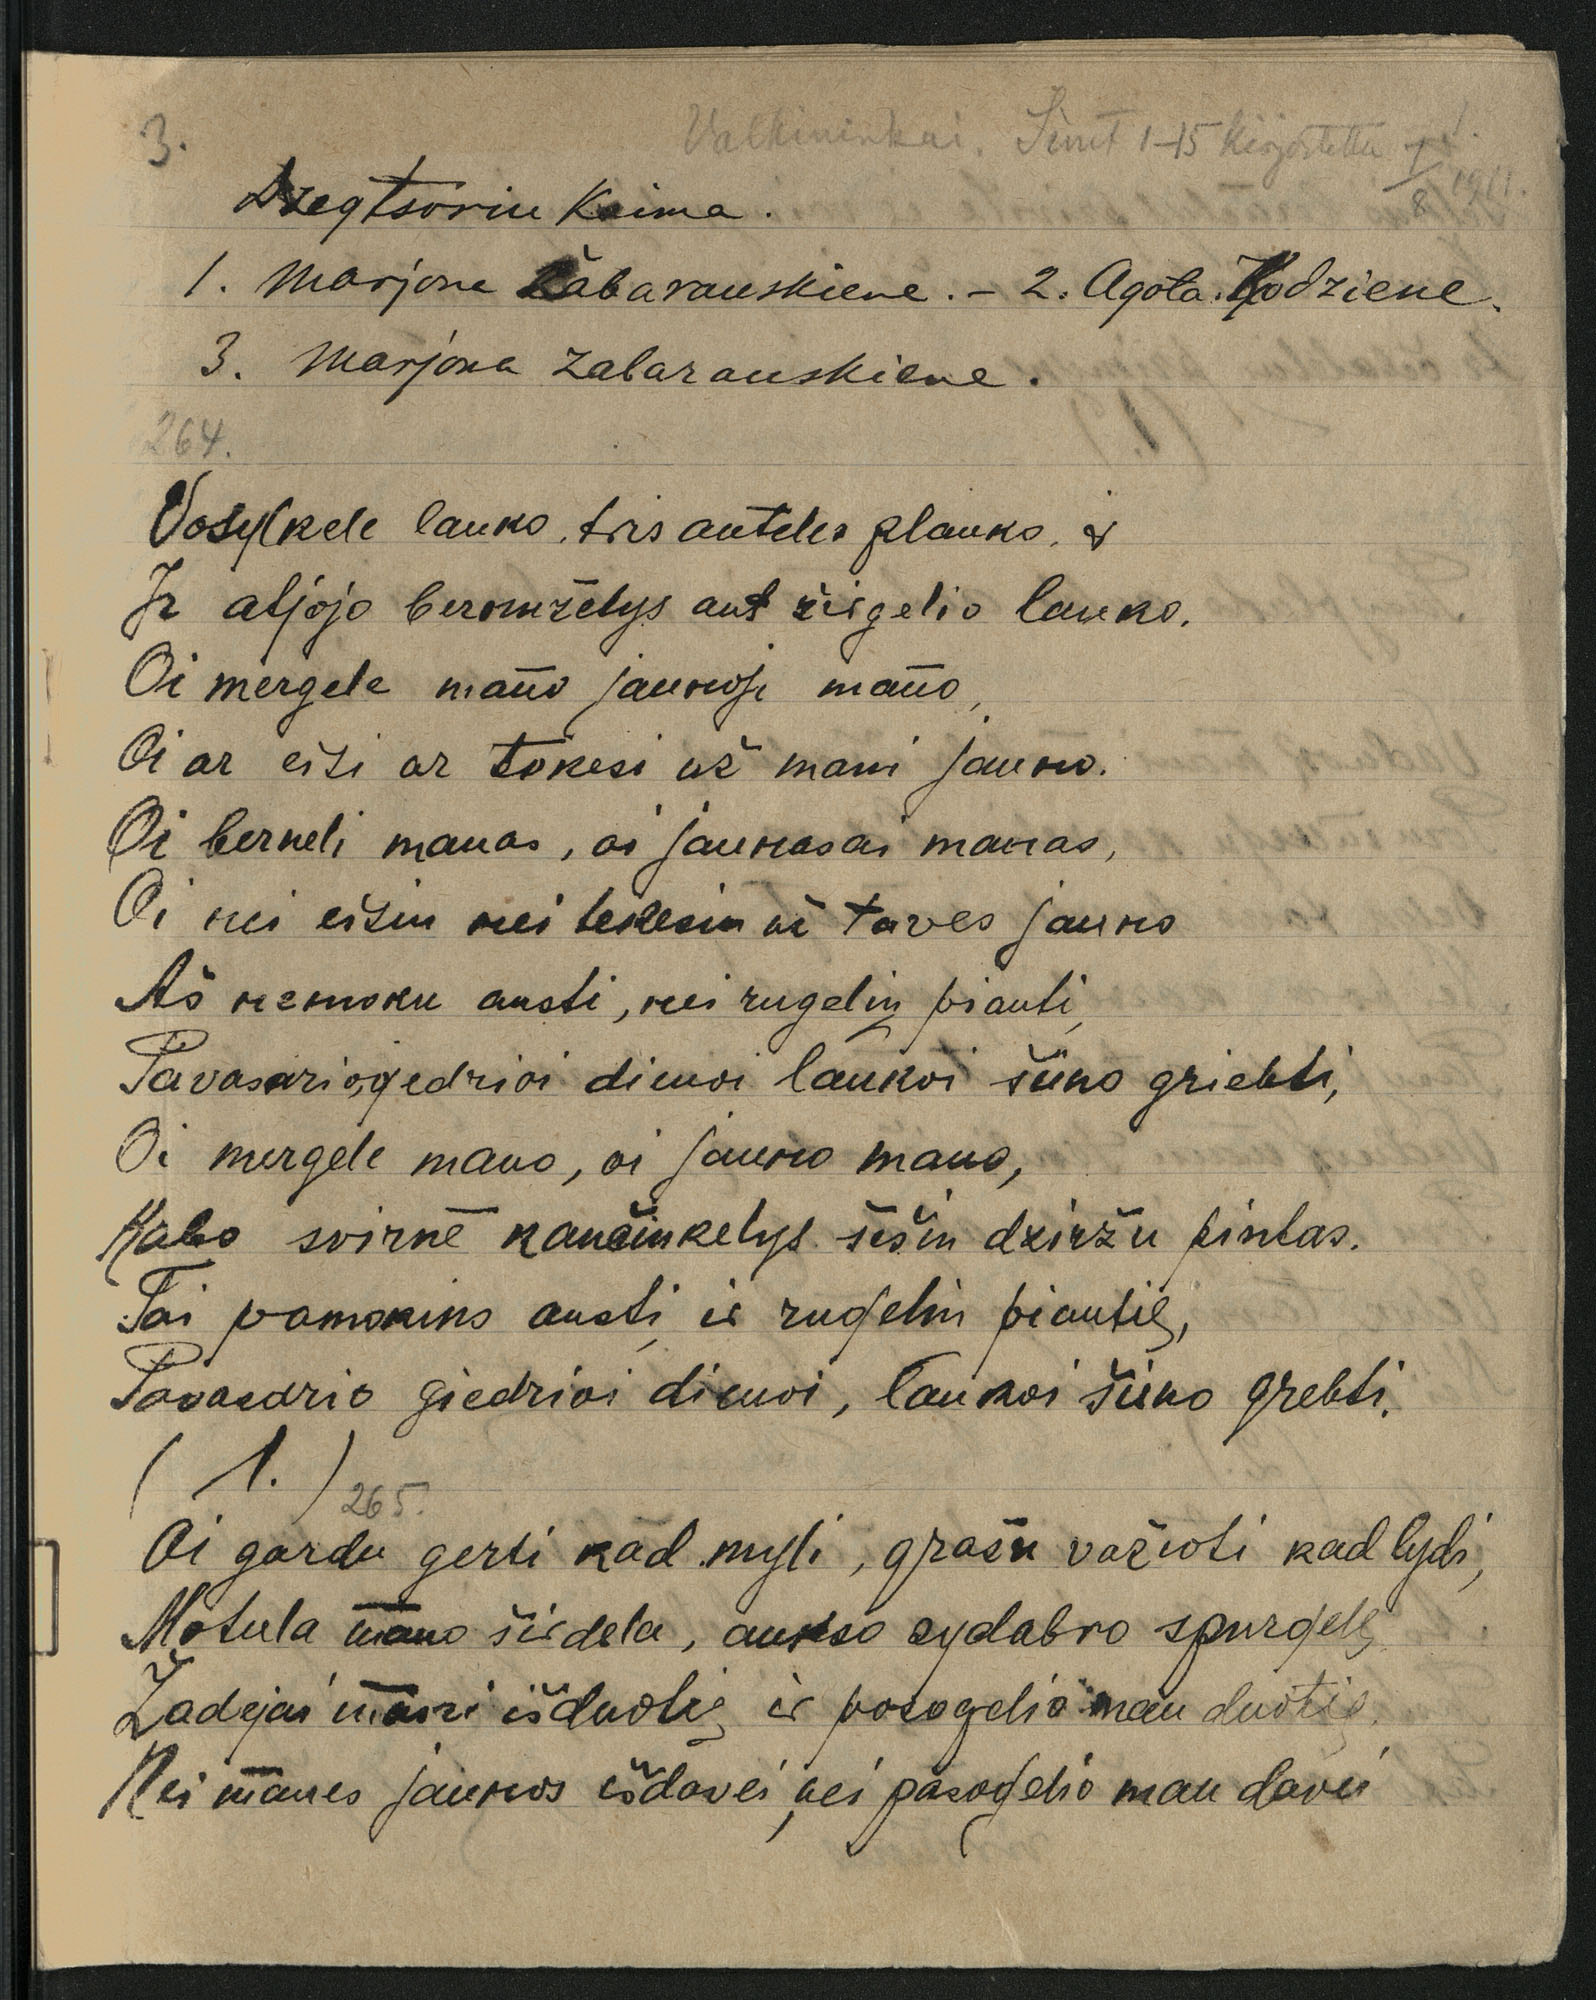 3.
Valkininkai. Sivut 1-15 Kirjoitettu 1/8 1911.
Dzegtsoriu Kaima.
1. Marjona Žabarauskiene. - 2. Agota Kodziene.
3. Marjona Zabarauskiene.
264.
Vosylkele lauko, tris anteles plauko, ir
Ir atjojo beromželys ant žirgelio lauko.
Oi mergele mano jaunoji mano,
Oi ar eiši ar tekesi už mani jauno.
Oi berneli manas, oi jaunasai manas,
Oi nei eišiu nei tekesiu už taves jauno
Aš nemoku austi, nei rugeliu piauti,
Pavasario gedrioi dienoi laukoi šieno griebti,
Oi mergele mano, oi jauno mano,
Kabo svirne kančinkelys šešiu dziržu pintas.
Tai pamokins austi ir rugeliu piautie,
Pavasario giedrioi dienoi, laukoi šieno grebti.
(1.)
265.
Oi gardu gerti kad myli, gražu važioti kad lydi,
Motula mano širdela, aukso sydabro spurgele
Zadejai mani išduotie ir posogelio man duotie.
Nei manes jaunos išdavei, nei pasogelio man davei